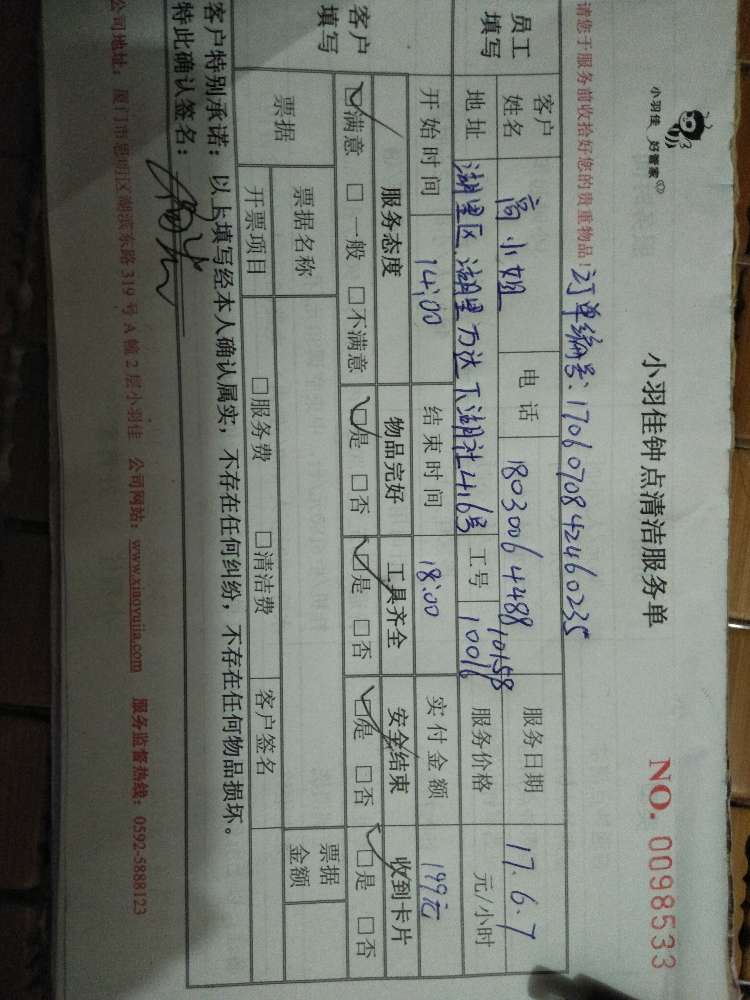 小羽佳 好管家®
小羽佳钟点清洁服务单
NO. 0098533
请您于服务前收拾好您的贵重物品!
订单编号:1706070842460235
员工填写 客户姓名 高小姐 电话 18030064488 服务日期 17.6.7
地址 湖里区湖里万达下湖社4,6号 工号 10158 10016 服务价格 元/小时
开始时间 14:00 结束时间 18:00 实付金额 199元
客户填写 服务态度 物品完好 工具齐全 安全结束 收到卡片
☑满意 □一般 □不满意 ☑是 □否 ☑是 □否 ☑是 □否 ☑是 □否
票据 票据名称 票据金额
开票项目 □服务费 □清洁费 客户签名
客户特别承诺:以上填写经本人确认属实,不存在任何纠纷,不存在任何物品损坏。
特此确认签名:
公司地址:厦门市思明区湖滨东路 319 号 A 幢 2 层小羽佳 公司网站:www.xiaoyujia.com 服务监督热线:0592-5888123